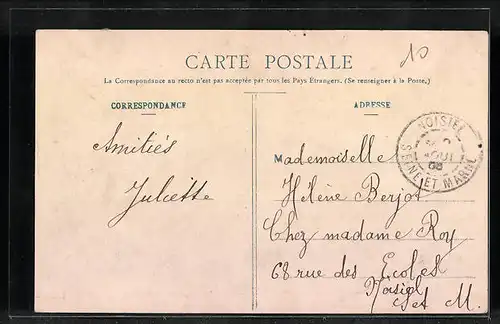 10
CARTE POSTALE
La Correspondance au recto n'est pas acceptée par tous les Pays Étrangers. (Se renseigner à la Poste.)
CORRESPONDANCE
Amitiés
Juliette
ADRESSE
NOISIEL
AOUT
SEINE ET MARNE
Mademoiselle
Hélène Berjot
Chez madame Roy
68 rue des Ecoles
Noisiel
S et M.